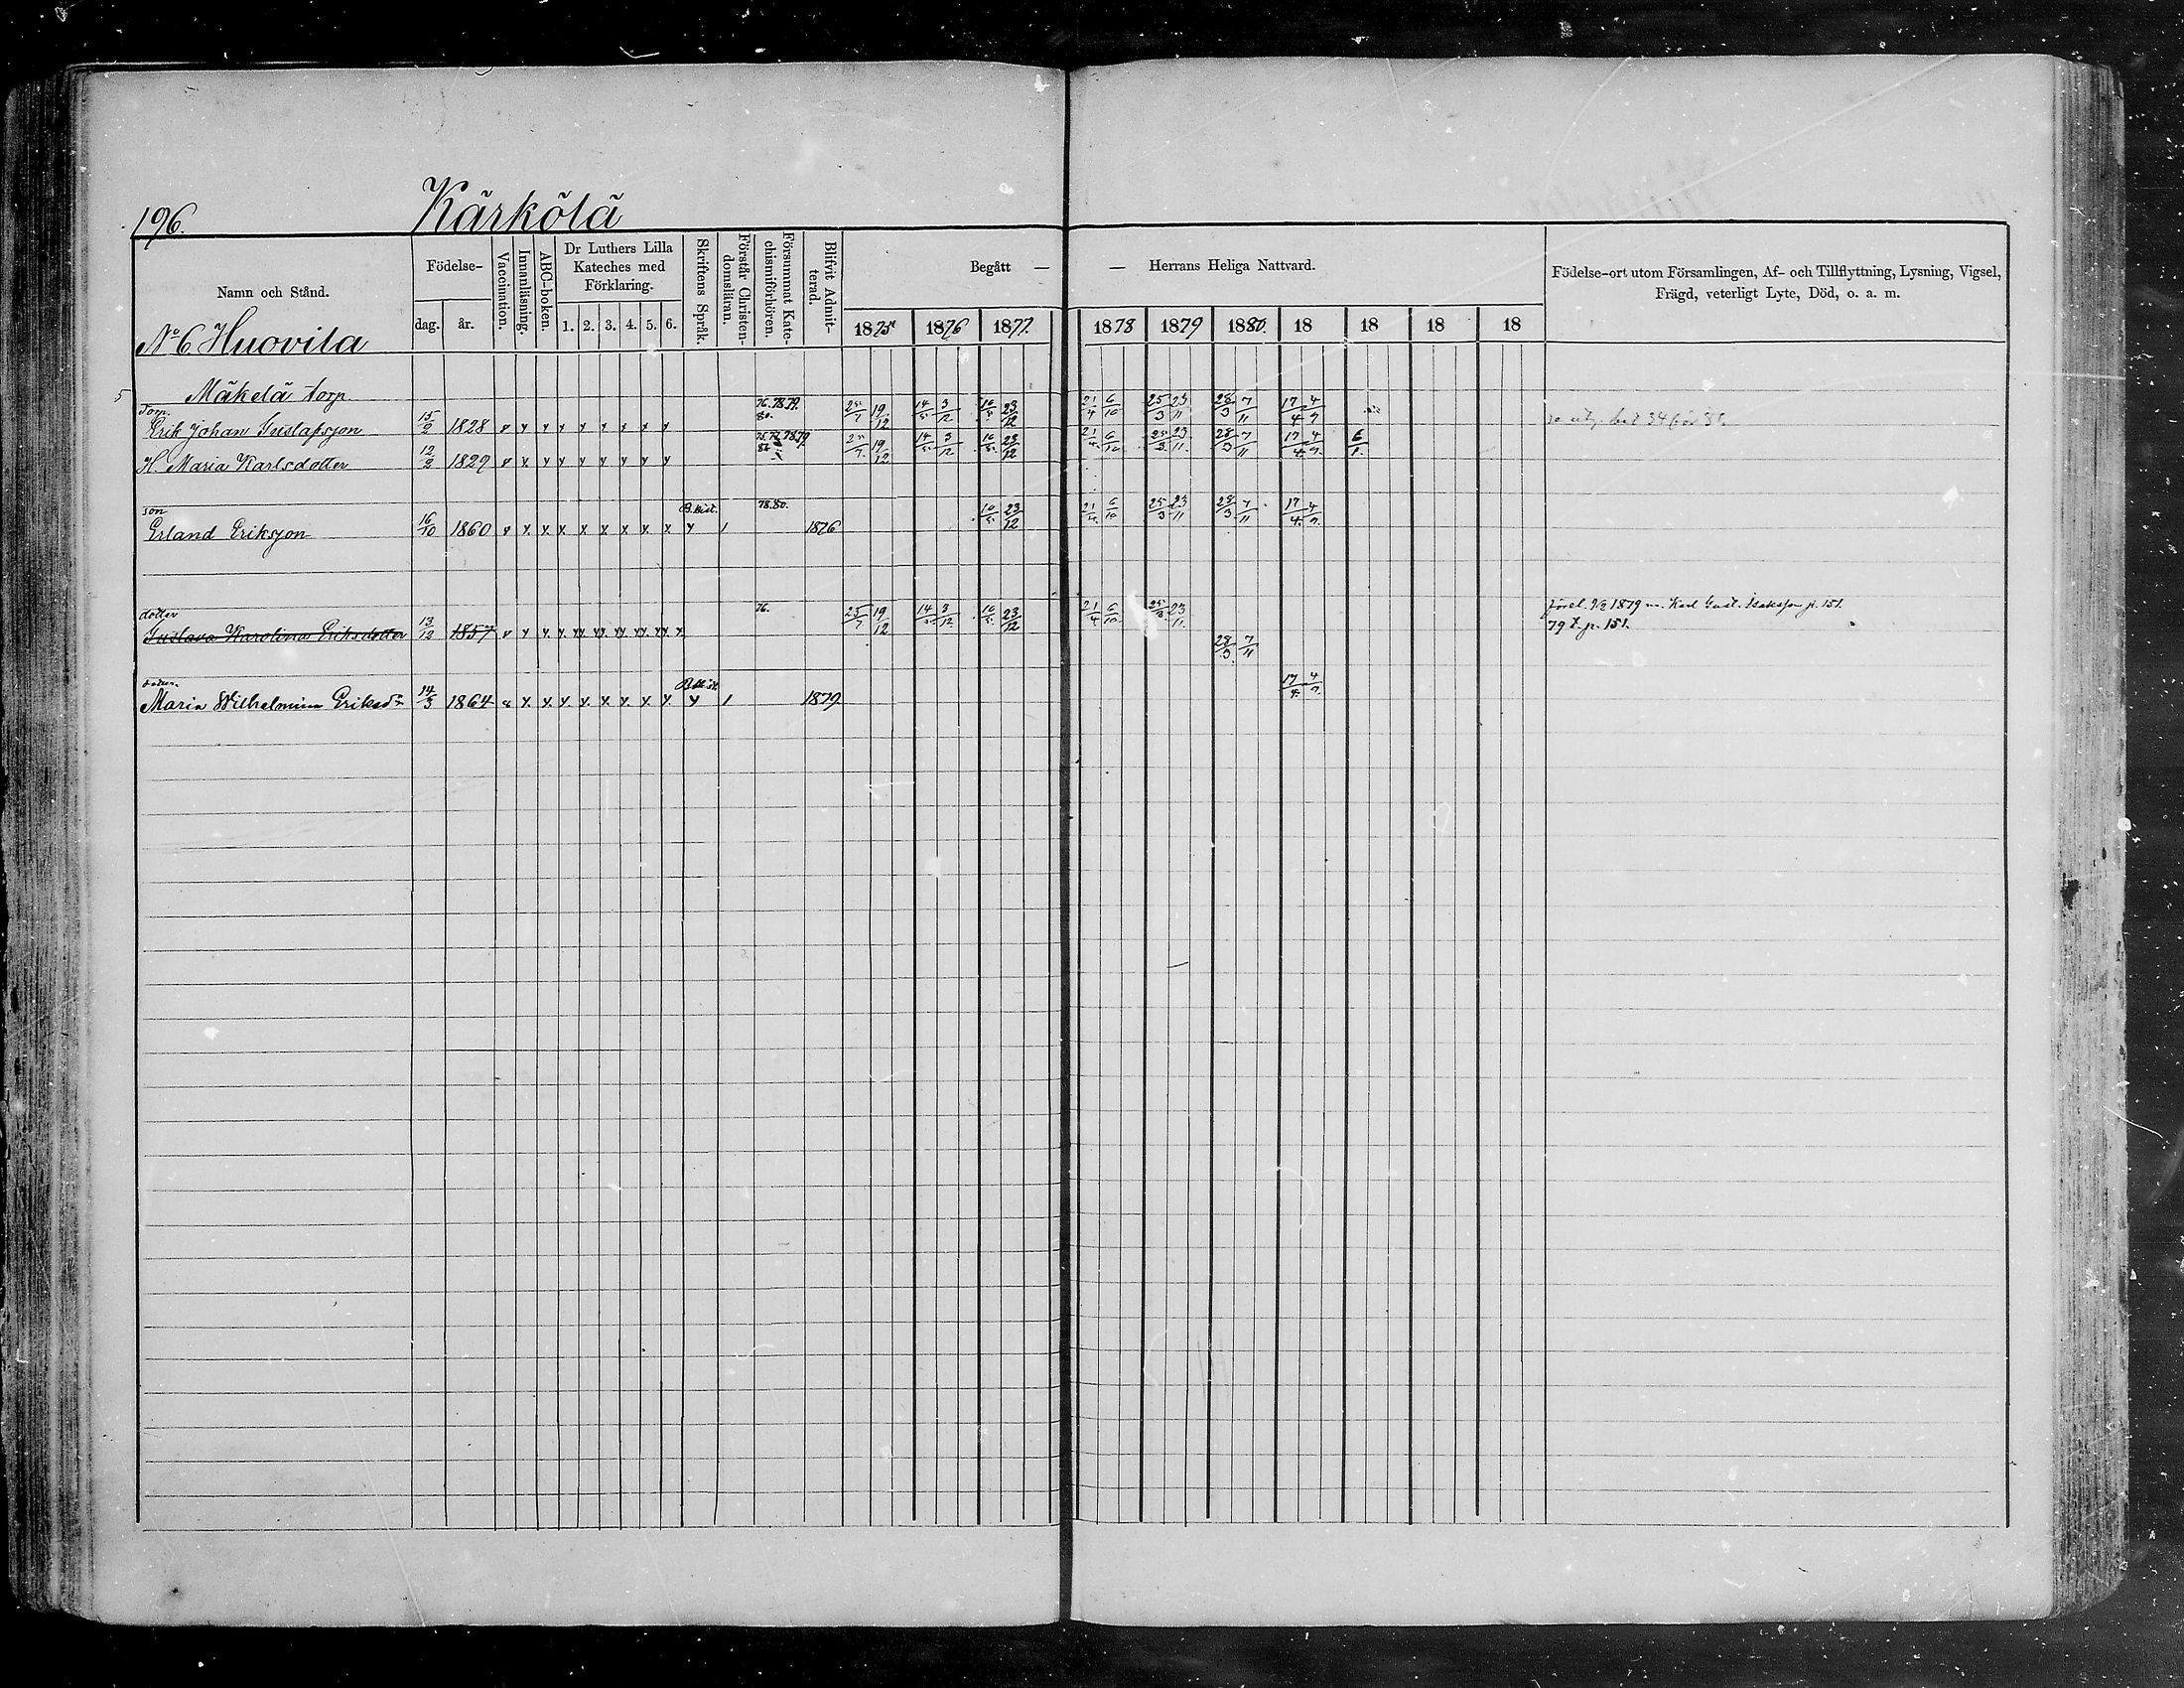 196.
Kärkölä
Namn och Stånd.
Födelse-
dag.
år.
Vaccination.
Innanläsning.
ABC-boken.
Dr Luthers Lilla
Kateches med
Förklaring.
1. 2. 3. 4. 5. 6.
Skriftens Språk.
Förstår Christen-
domsläran.
Försummat Kate-
chismiförhören.
Blifvit Admit-
terad.
Begått — — Herrans Heliga Nattvard.
1875 1876 1877. 1878 1879 1880. 18 18 18 18
Födelse-ort utom Församlingen, Af- och Tillflyttning, Lysning, Vigsel,
Frägd, veterligt Lyte, Död, o. a. m.
No 6 Huovila
5
Mäkelä torp.
Torp.
76. 78. 79.
80.
Erik Johan Gustafsson 15/2 1828 25/7 19/12 14/5 3/12 10/5 23/12 21/4 6/10 25/3 23/11 28/3 7/11 17/4 4/9
H. Maria Karlsdotter 12/2 1829 25/7 19/12 14/5 3/12 10/5 23/12 21/4 6/10 25/3 23/11 28/3 7/11 17/4 4/9
son
B. hist.
78. 80.
Erland Eriksson 16/10 1860 1876 10/5 23/12 21/4 6/10 25/3 23/11 28/3 7/11 17/4 4/9
dotter
76.
Gustava Karolina Eriksdotter 13/12 1857 25/7 19/12 14/5 3/12 10/5 23/12 21/4 6/10 25/3 23/11
28/3 7/11
1879 m. Karl Gust. Isaksson p. 151.
79 p. 151.
Maria Wilhelmina Eriksdr 14/3 1864 1879. 17/4 4/9